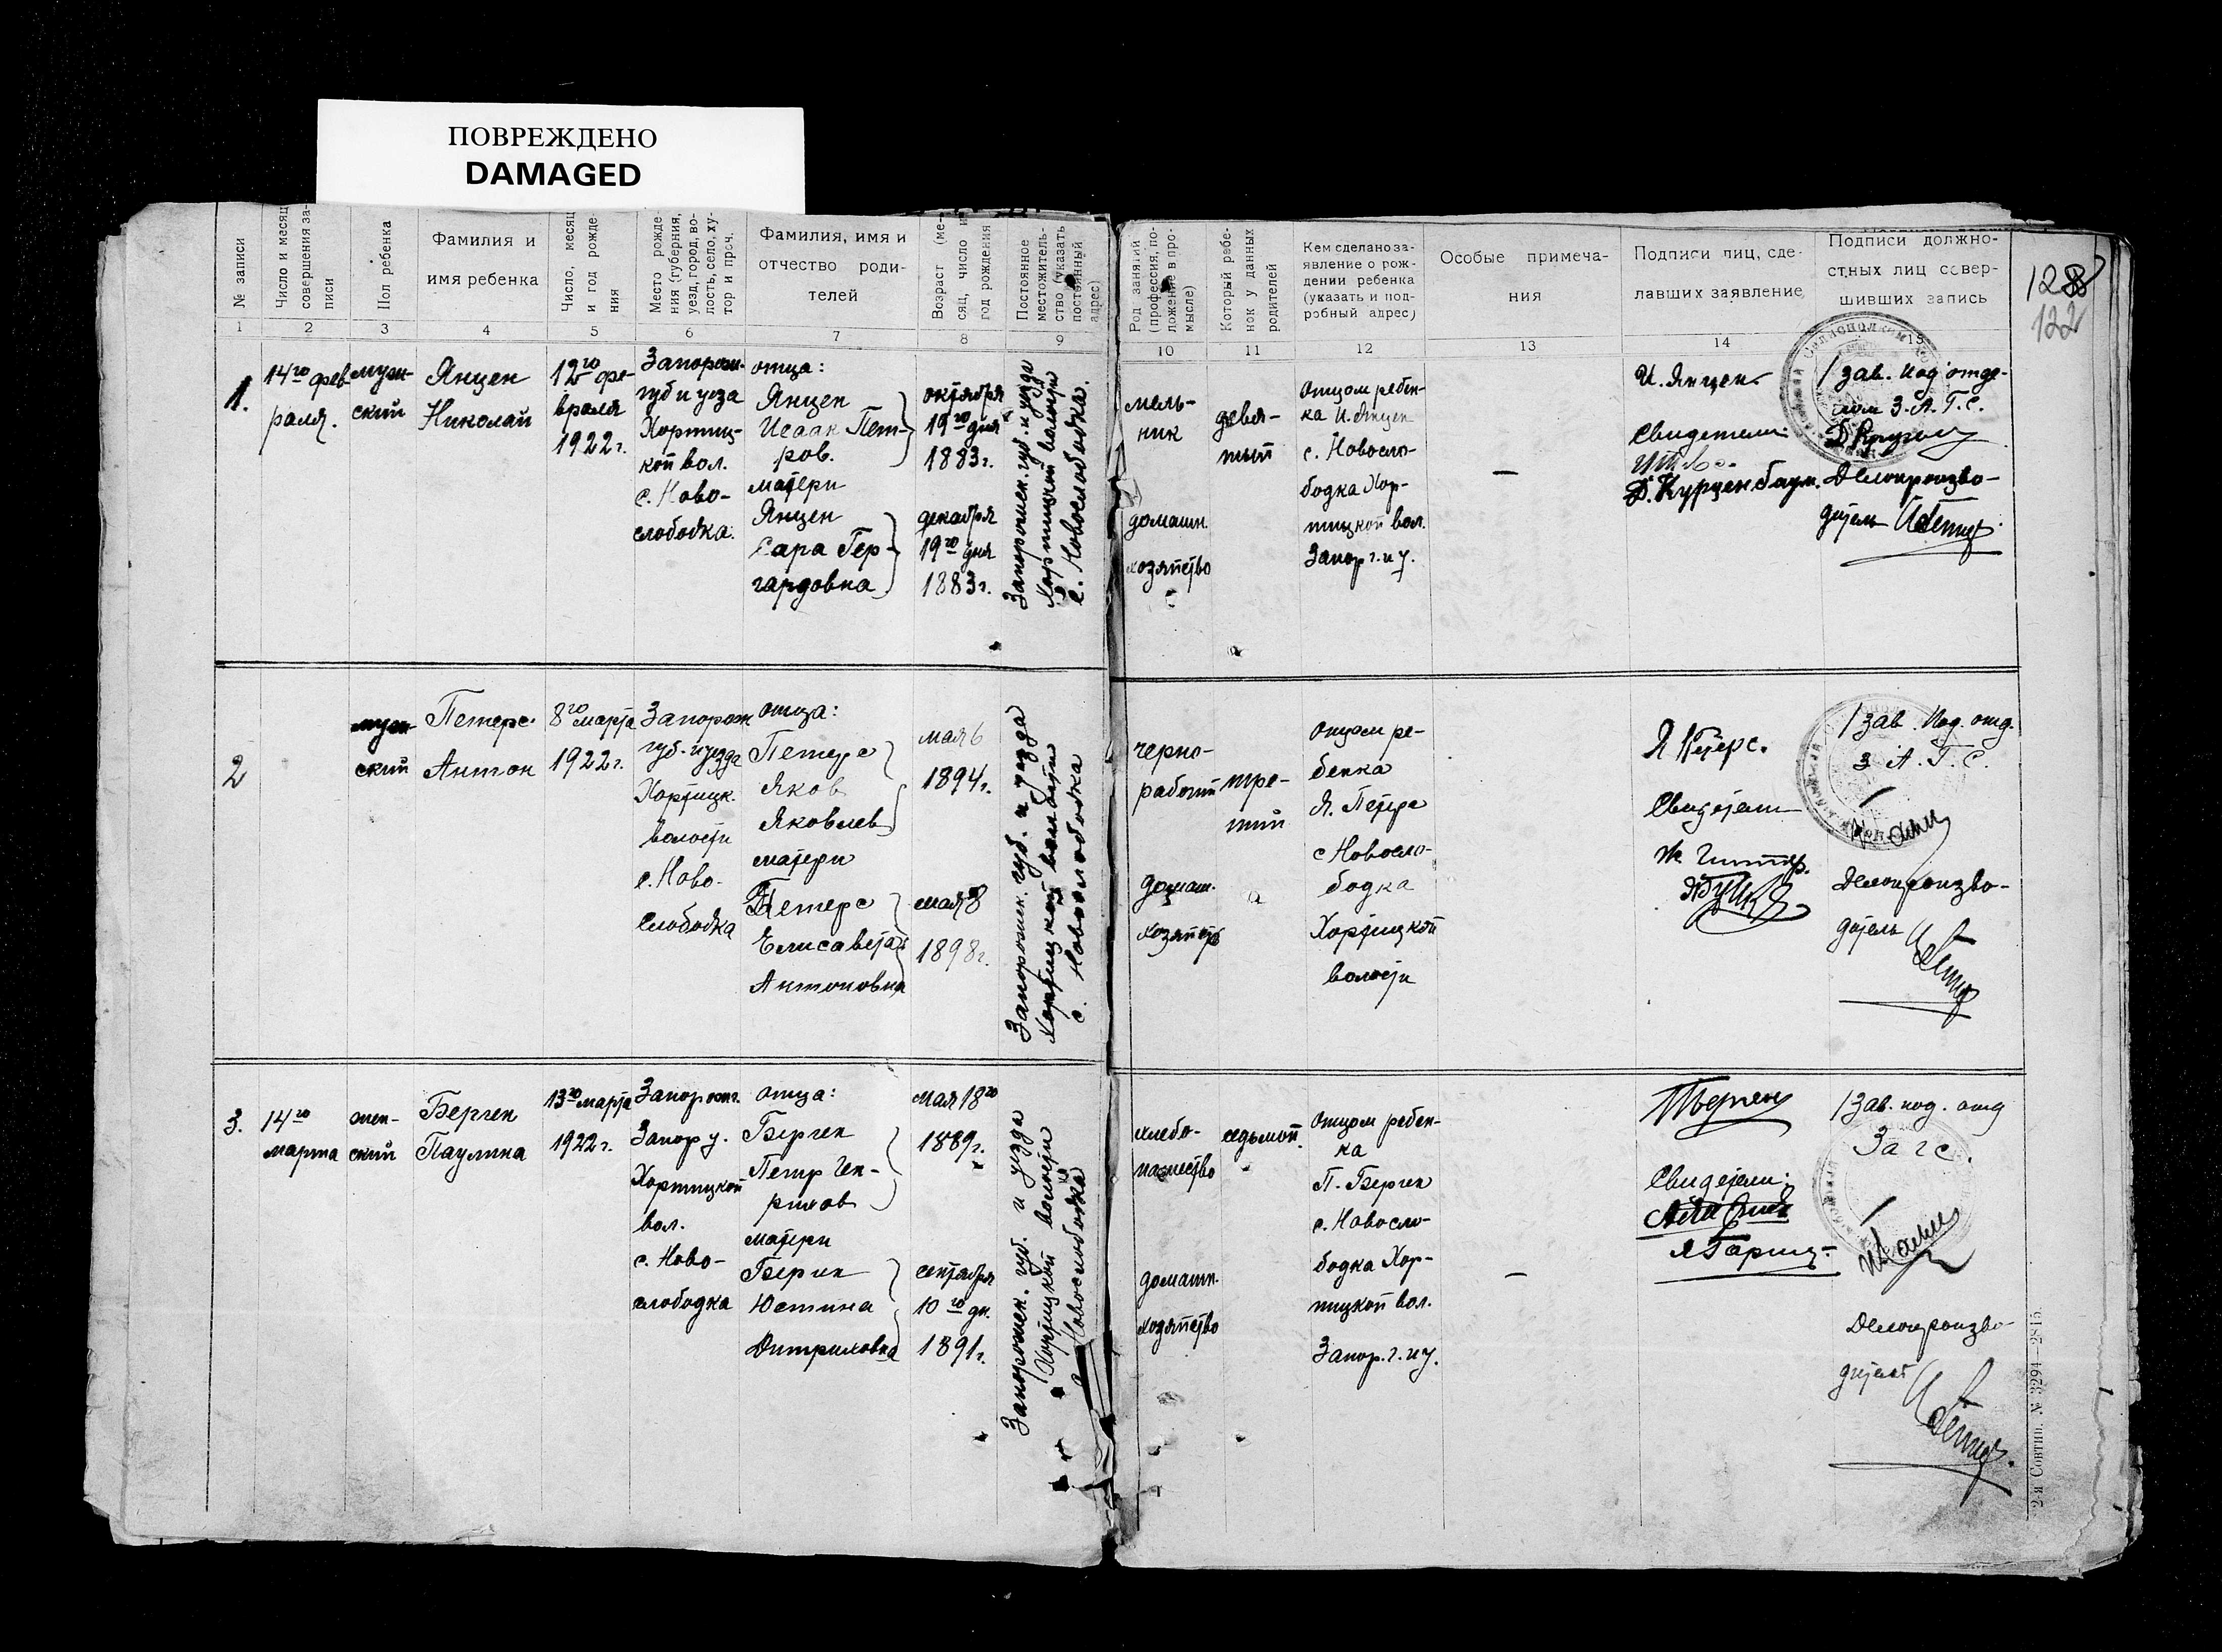 ПОВРЕЖДЕНО
DAMAGED
№ записи
Число и месяц
совершения за-
писи
Пол ребенка
Фамилия и
имя ребенка
Число, месяц
и год рожде-
ния
Место рожде-
ния (губерния,
уезд, город, во-
лость, село, ху-
тор и проч.
Фамилия, имя и
отчество роди-
телей
Возраст (ме-
сяц, число и
год рождения
Постоянное
местожитель-
ство (указать
постоянный
адрес)
Род занятий
(профессия, по-
ложение в про-
мысле)
Который ребе-
нок у данных
родителей
Кем сделано за-
явление о рож-
дении ребенка
(указать и под-
робный адрес)
Особые примеча-
ния
Подписи лиц, сде-
лавших заявление
Подписи должно-
стных лиц совер-
шивших запись
128
122
1 2 3 4 5 6 7 8 9 10 11 12 13 14 15
1.
14го фев-
раля.
муж-
ский
Янцен
Николай
12го фе-
враля
1922 г.
Запорож.
губ и уезда
Хортиц-
кой вол.
с. Ново-
слободка.
отца:
Янцен
Исаак Пет-
ров.
матери
Янцен
Сара Гер-
гардовна
октября
19го дня
1883 г.
декабря
19го дня
1883 г.
Запорожск. губ. и уезда
Хортицкой волости
с. Новослободка.
мель-
ник
домашн.
хозяйство
девя-
тый
отцом ребен-
ка И. Янцен
с. Новосло-
бодка Хор-
тицкой вол.
Запор г. и у.
—
И. Янцен
Свидетели:
Д. Курценбаум.
/зав. под'отде-
лом З.А.Г.С.
Делопроизво-
дитель
2
муж
ский
Петерс
Антон
8го марта
1922 г.
Запорож
губ. и уезда
Хортицк.
волости
с. Ново-
слободка
отца:
Петерс
Яков
Яковлев
матери
Петерс
Елисавета
Антоновна
мая 6
1894 г.
мая 8
1898 г.
Запорожск. губ. и уезда
Хортицкой волости
с. Новослободка
черно-
рабочий
домаш.
хозяйств
тре-
тий
отцом ре-
бенка
Я. Петерс
с Новосло-
бодка
Хортицкой
волости
Я Петерс.
Свидетели
/зав. Под. отд.
З А. Г. С.
Делопроизво-
дитель
3.
14го
марта
жен-
ский
Берген
Паулина
13го марта
1922 г.
Запорожг.
Запор у.
Хортицкой
вол.
с. Ново-
слободка
отца:
Берген
Петр Ген-
рихов
матери
Берген
Юстина
Дитриховна
мая 18го
1889 г.
сентября
10го дн.
1891 г.
Запорожск. губ. и уезда
Хортицкой волости
с. Новослободка
хлебо-
пашество
домашн.
хозяйство
седьмой.
отцом ребен-
ка
П. Берген
с. Новосло-
бодка Хор-
тицкой вол.
Запор. г. и у.
—
Свидетели:
/Зав. под. отд
Загс.
Делопроизво-
дитель
2-я Совтип. № 3294—2815.